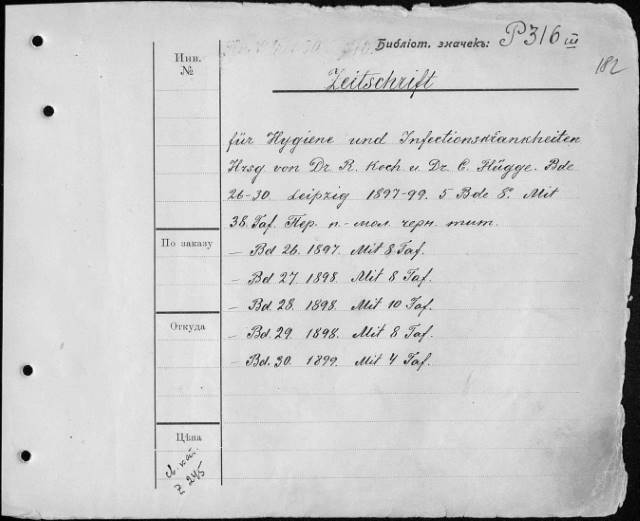 Библіот. значекъ: P316 III
182
Инв.
№
Zeitschrift
für Hygiene und Infectionskrankheiten
Hrsg von Dr R. Koch u. Dr. C. Flügge. Bde
26-30. Leipzig 1897-99. 5 Bde 8º. Mit
38 Taf. Пер. п.-мол. черн. тит.
По заказу
— Bd 26. 1897. Mit 8 Taf.
— Bd 27. 1898. Mit 8 Taf.
— Bd 28. 1898. Mit 10 Taf.
Откуда
— Bd. 29. 1898. Mit 8 Taf.
— Bd. 30. 1899. Mit 4 Taf.
Цѣна
кат.
Z 245